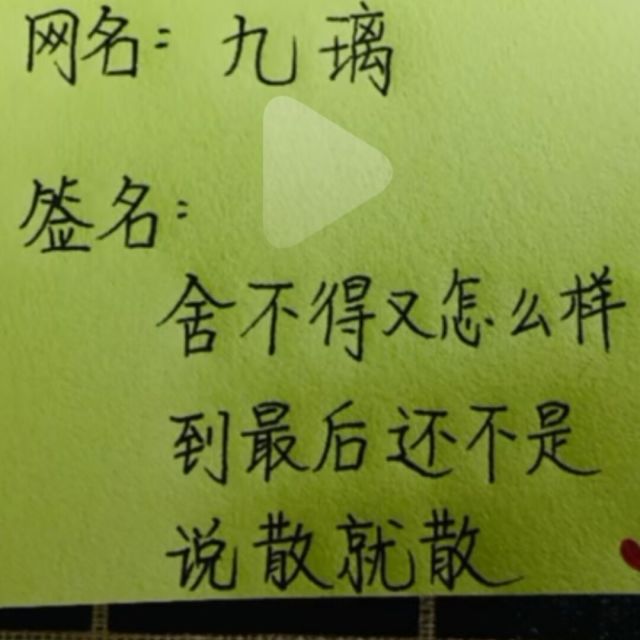 网名：九璃
签名：
舍不得又怎么样
到最后还不是
说散就散